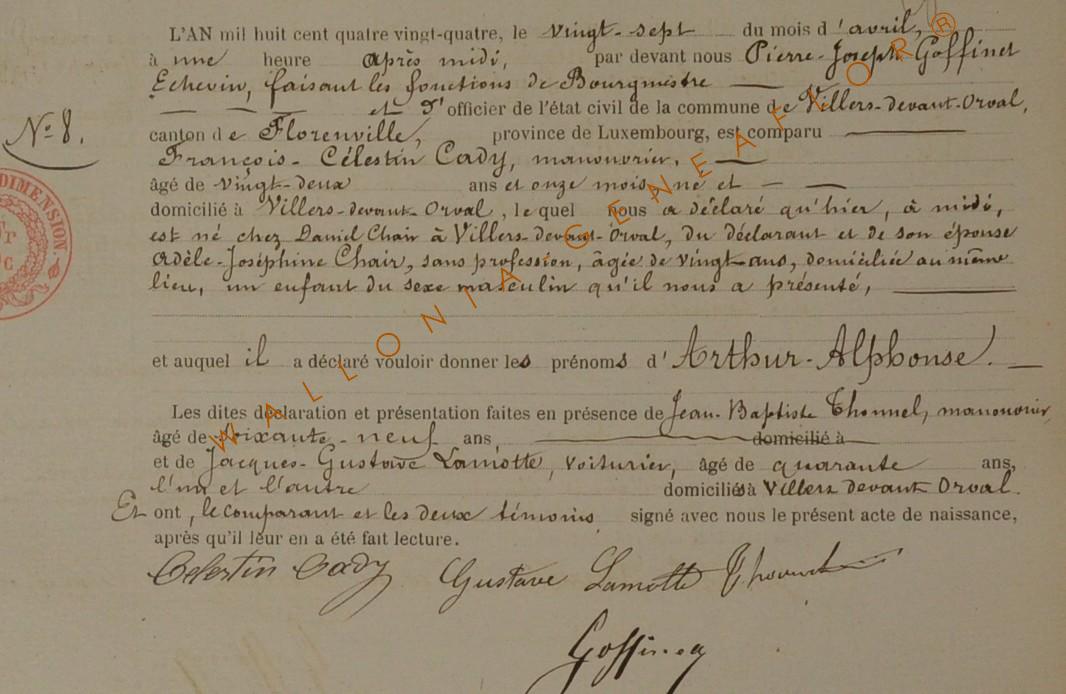 L'AN mil huit cent quatre vingt-quatre, le vingt-sept du mois d'avril,
à une heure après midi, par devant nous Pierre-Joseph Goffinet
Echevin, faisant les fonctions de Bourgmestre
et d'officier de l'état civil de la commune de Villers-devant-Orval,
N° 8.
canton de Florenville, province de Luxembourg, est comparu
François-Célestin Cady, manouvrier,
âgé de vingt-deux ans et onze mois, né et
domicilié à Villers-devant-Orval, lequel nous a déclaré qu'hier, à midi,
est né chez Daniel Chair à Villers-devant-Orval, du déclarant et de son épouse
Adèle-Joséphine Chair, sans profession, âgée de vingt ans, domiciliée au même
lieu, un enfant du sexe masculin qu'il nous a présenté,
et auquel il a déclaré vouloir donner les prénoms d'Arthur-Alphonse.
Les dites déclaration et présentation faites en présence de Jean-Baptiste Thonnel, manouvrier,
âgé de soixante-neuf ans, domicilié à
et de Jacques-Gustave Lamotte, voiturier, âgé de quarante ans,
l'un et l'autre domiciliés à Villers devant Orval.
Et ont, le comparant et les deux témoins signé avec nous le présent acte de naissance,
après qu'il leur en a été fait lecture.
Celestin Cady Gustave Lamotte
Goffinet
DIMENSION
WALLONIA GENEAFKOR ®